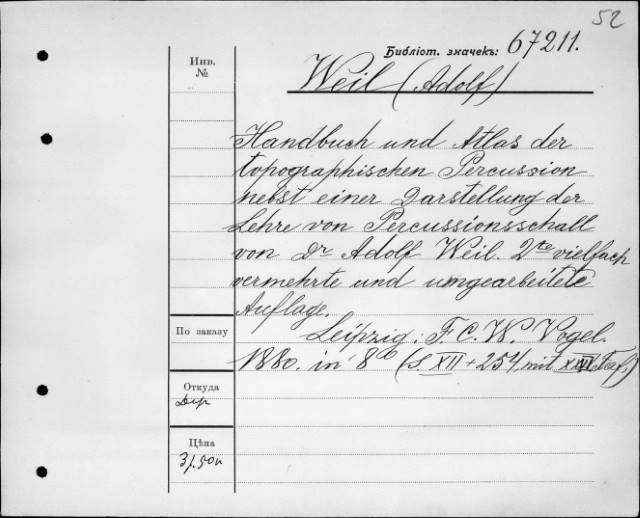 52
Библіот. значекъ: 67211.
Инв.
№
Weil (Adolf)
Handbuch und Atlas der
topographischen Percussion
nebst einer Darstellung der
Lehre von Percussionsschall
von Dr Adolf Weil. 2te vielfach
vermehrte und umgearbeitete
Auflage.
По заказу
Leipzig: F. C. W. Vogel.
1880. in 8° (S. XII + 254, mit Taf.)
Откуда
Цѣна
3 р. 50 к